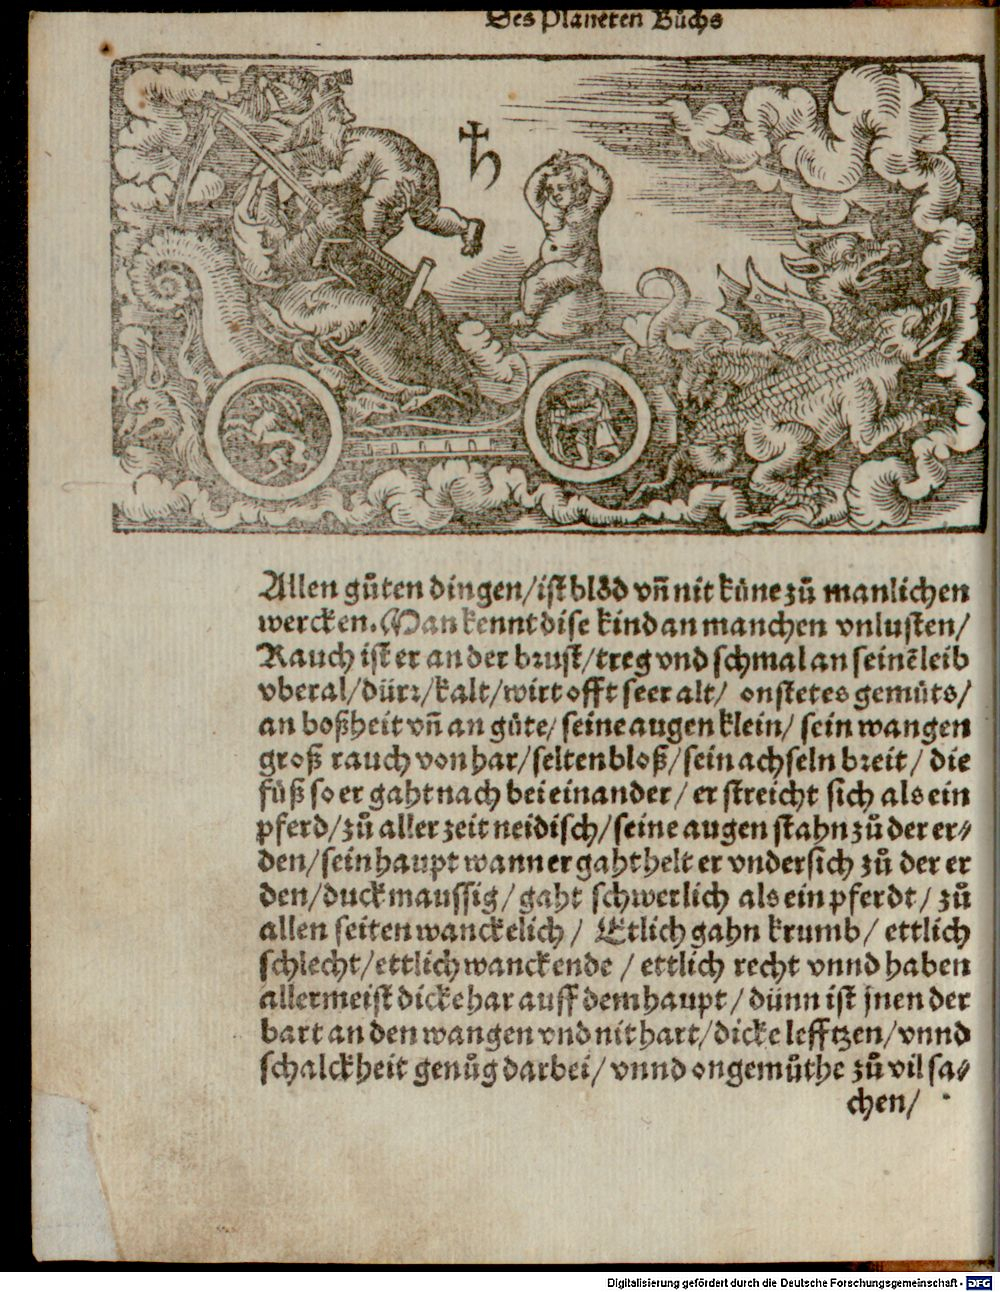 Des Planeten Bůchs
♄
Allen gůten dingen/ist blöd vñ nit küne zů manlichen
wercken. Man kennt dise kind an manchen vnlusten/
Rauch ist er an der brust/treg vnd schmal an seinẽ leib
vberal/dürr/kalt/wirt offt seer alt/ onstetes gemüts/
an boßheit vñ an güte/ seine augen klein/ sein wangen
groß rauch von har/selten bloß/sein achseln breit/ die
füß so er gaht nach bei einander/ er streicht sich als ein
pferd/zů aller zeit neidisch/seine augen stahn zů der er⸗
den/sein haupt wann er gaht helt er vndersich zů der er
den/duckmaussig/ gaht schwerlich als ein pferdt/ zů
allen seiten wanckelich/ Etlich gahn krumb/ ettlich
schlecht/ettlich wanckende/ ettlich recht vnnd haben
allermeist dicke har auff dem haupt/ dünn ist jnen der
bart an den wangen vnd nit hart/dicke lefftzen/vnnd
schalckheit genůg darbei/ vnnd ongemüthe zů vil sa⸗
chen/
Digitalisierung gefördert durch die Deutsche Forschungsgemeinschaft - DFG